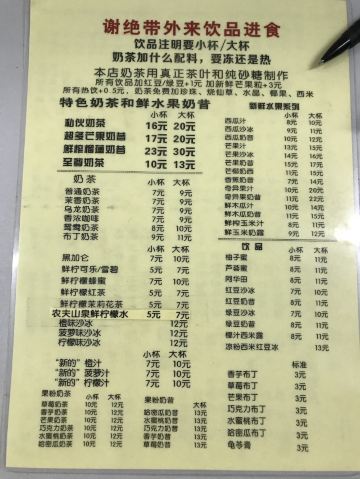 谢绝带外来饮品进食
饮品注明要小杯/大杯
奶茶加什么配料，要冻还是热
本店奶茶用真正茶叶和纯砂糖制作
所有饮品加红豆/绿豆+1元 加新鲜芒果粒+3元
所有热饮+0.5元，奶茶免费加珍珠、烧仙草、水晶、椰果、西米
特色奶茶和鲜水果奶昔
小杯 大杯
私伙奶茶 16元 20元
超多芒果奶昔 17元 20元
鲜榴榴莲奶昔 17元 30元
至尊奶茶 10元 13元
奶茶
小杯 大杯
普通奶茶 7元 9元
茉香奶茶 7元 9元
乌龙奶茶 7元 9元
香浓咖啡 7元 9元
鸳鸯奶茶 8元 10元
布丁奶茶 9元 11元
小杯 大杯
黑加仑 7元 10元
鲜柠可乐/雪碧 5元 7元
鲜柠檬蜂蜜 7元 10元
鲜柠檬红茶 5元 7元
鲜柠檬茉莉花茶 5元 7元
农夫山泉鲜柠檬水 5元 7元
橙味沙冰 12元
菠萝味沙冰 12元
柠檬味沙冰 12元
小杯 大杯
"新的"橙汁 7元 10元
"新的"菠萝汁 7元 10元
"新的"柠檬汁 7元 10元
果粉奶茶 小杯 大杯
草莓奶茶 10元 12元
香芋奶茶 10元 12元
芒果奶茶 10元 12元
巧克力奶茶 10元 12元
水蜜桃奶茶 10元 12元
哈密瓜奶茶 10元 12元
果粉奶昔 大杯
哈密瓜奶昔 13元
芒果奶昔 13元
香芋奶昔 13元
巧克力奶昔 13元
水蜜桃奶昔 13元
草莓奶昔 13元
新鲜水果系列
小杯 大杯
西瓜汁 8元 10元
西瓜沙冰 9元 11元
西瓜奶昔
芒果汁
芒果沙冰
芒果奶昔
芒椰奶西
香蕉奶昔
奇异果汁
奇异果奶昔
鲜木瓜汁
鲜木瓜奶昔
鲜榨玉米汁
鲜玉米奶露
饮品
小杯 大杯
柚子蜜
芦荟蜜
阿华田
红豆沙冰
红豆奶昔
绿豆沙冰
绿豆奶昔
椰汁西米露
凉粉西米红豆冰 13元
标准
香芋布丁 3元
草莓布丁 3元
芒果布丁 3元
巧克力布丁 3元
水蜜桃布丁 3元
哈密瓜布丁 3元
龟苓膏 3元